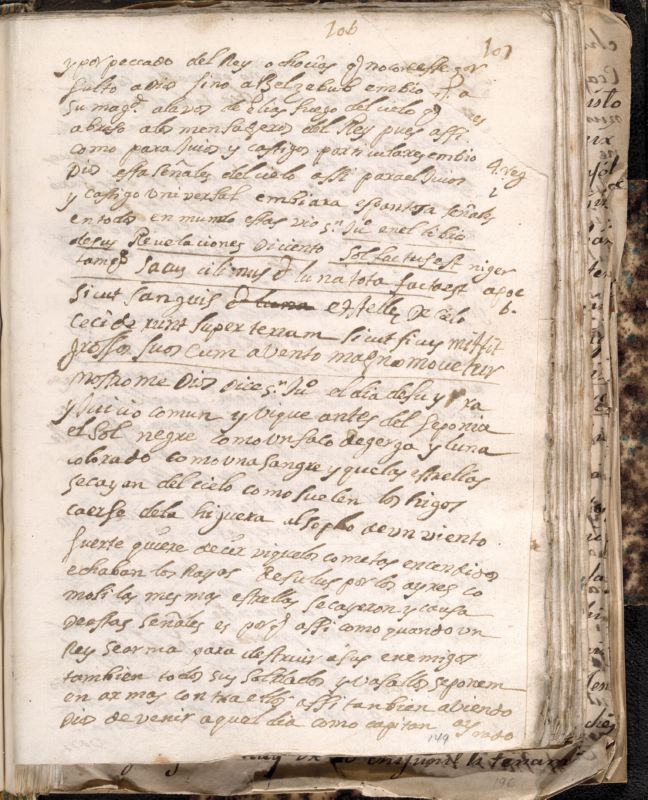 106
107
y por peccado del Rey ochocias q no consessor
sulto a Dios sino a Belzebub embio
su magd. a la vos de Elias fuego del cielo q
abraso a los mensageros del Rey pues assi
como para juicios y castigos particulares embio
4. reg
1
Dios essas señales del cielo assi para el juicio
y castigo universal embiara espantosa señales
en todo en mundo estas vio sn. Juo. en el libro
de sus Revelaciones diciento Sol factus est niger
tamqe saccus cilicinus & luna tota facta est apoc
6.
sicut sanguis & luna et stellę de celo
ceciderunt super terram sicut ficus mittit
grossos suos cum a vento magno movetur
mostrome Dios dice sn. Juo. el dia de su yra
y Juicio comun y vi que antes del se ponia
el Sol negre como un saco de gerga y luna
colorado como una sangre y que las estrellas
se cayan del cielo como suelen los higos
caerse de la higuera al soplo de un viento
fuerte quiere decir vi que los cometas encendidos
echaban los Rayos de su luz por los ayres co
mo si las mesmas estrellas se cayeron y causa
de estas señales es porq assi como quando un
Rey se arma para destruir a sus enemigos
tambien todos sus soldados y vasallos se ponem
en armas contra ellos assi tanbien abiendo
Dios de venir aquel dia como capitan ayrado
149
196